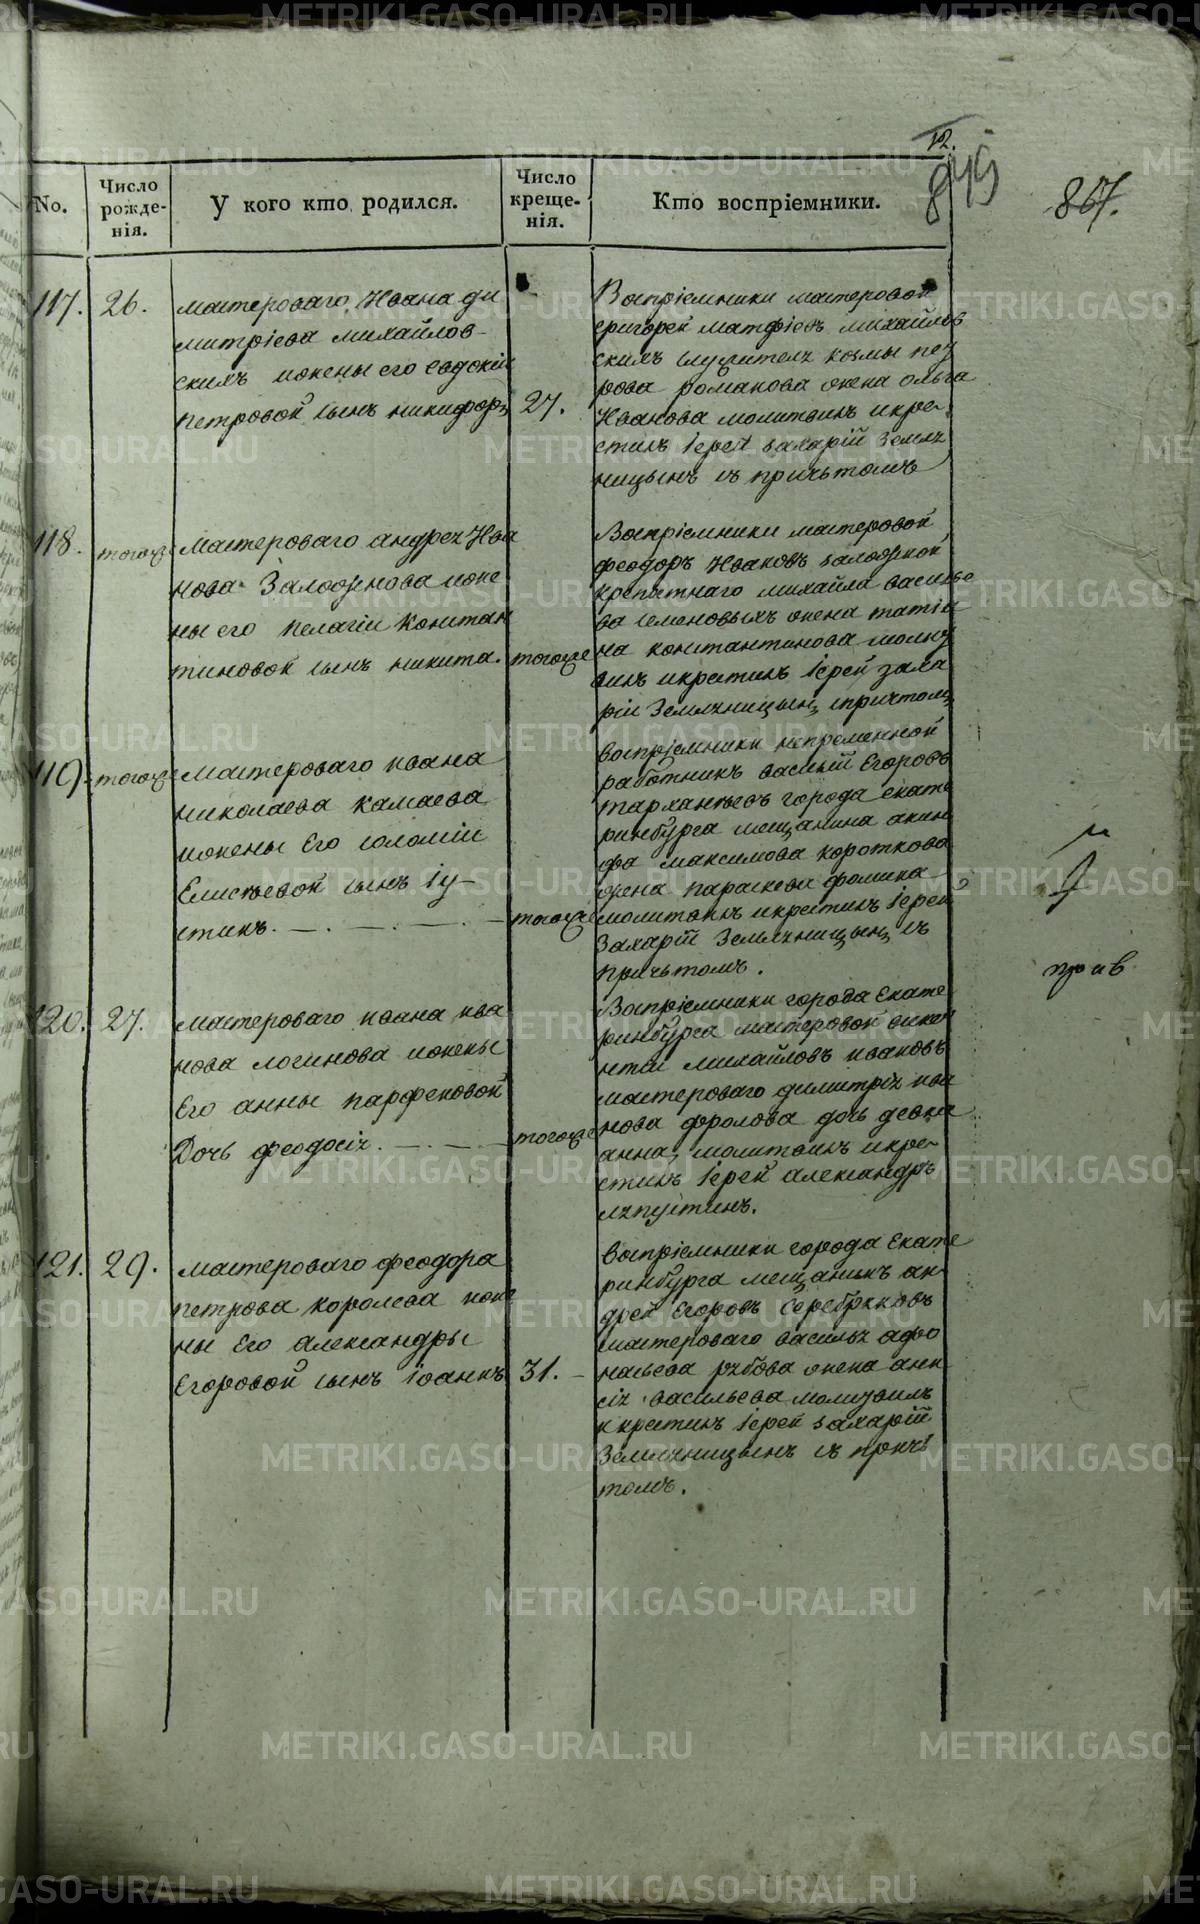 12.
845
867.
No.
Число рожде-нія.
У кого кто родился.
Число креще-нія.
Кто воспріемники.
117. 26.
мастероваго Ивана ди
митріева михайлов-
скихъ ижены его евдокіи
петровой сынъ никифоръ 27.
Воспріемники мастеровой
григорей матфіевъ михайлов
скихъ служителя козмы пет
рова романова жена ольга
Иванова молитвилъ икре-
стилъ іерей захарій земля
ницынъ съ причьтомъ
118. тогоже
Мастероваго андрея Ива
нова Заложнова иже
ны его пелагіи констан
тиновой сынъ никита. тогоже
Воспріемники мастеровой
феодоръ Ивановъ
михайла василье
ва семеновыхъ жена татія
на константинова молит
вилъ икрестилъ іерей заха
рій Земляницынъ спричтомъ
119. тогоже
Мастероваго ивана
николаева камаева
ижены Его соломіи
Елисѣевой сынъ іу-
стинъ. тогоже
воспріемники непременной
работникъ василій Егоровъ
тарханѣевъ города екате
ринбурга мещанина акин
фа максимова короткова
жена параскева фомина
молитвилъ икрестилъ іерей
Захарій Земляницынъ съ
причьтомъ.
прив
120. 27.
мастероваго ивана ива
нова логинова ижены
Его анны парфеновой
Дочь феодосія. тогоже
Воспріемники города Екате
ринбурга мастеровой викен
нтій михайловъ ивановъ
мастероваго димитрія ива
нова фролова дочь девка
анна, молитвилъ икре-
стилъ іерей александръ
ляпустинъ.
121. 29.
мастероваго феодора
петрова королева иже
ны Его александры
Егоровой сынъ іоаннъ 31.
воспріемники города Екате
ринбурга мещанинъ ан
дрей Егоровъ серебряковъ
мастероваго василья афо
насьева рябова жена ани
сія васильева молитвилъ
и крестилъ іерей захарій
Земляницынъ съ причь
томъ.
METRIKI.GASO-URAL.RU